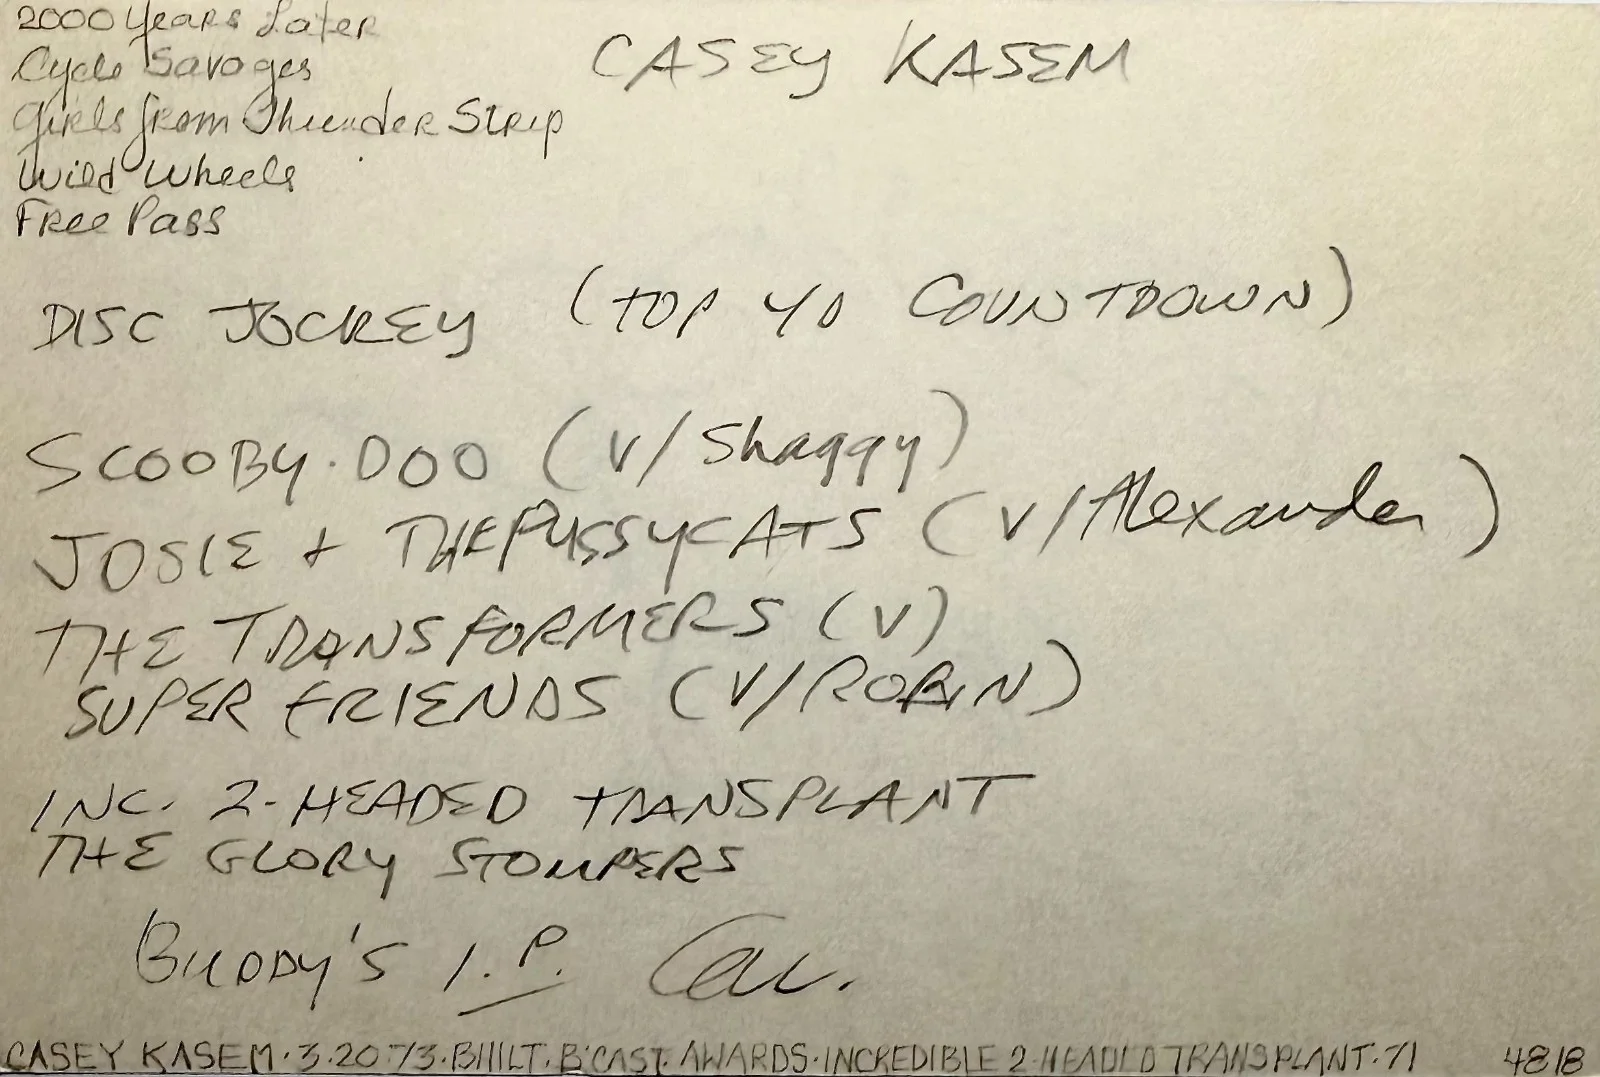 2000 Years Later
Cycle Savages
Girls from Thunder Strip
Wild Wheels
Free Pass
CASEY KASEM
DISC JOCKEY (TOP 40 COUNTDOWN)
SCOOBY-DOO (V/Shaggy)
JOSIE + THE PUSSYCATS (V/Alexander)
THE TRANSFORMERS (V)
SUPER FRIENDS (V/ROBIN)
INC. 2-HEADED TRANSPLANT
THE GLORY STOMPERS
BUDDY'S I.P.
CASEY KASEM·3·20·73·B'HILT·B'CAST AWARDS·INCREDIBLE 2-HEADED TRANSPLANT·71 4818